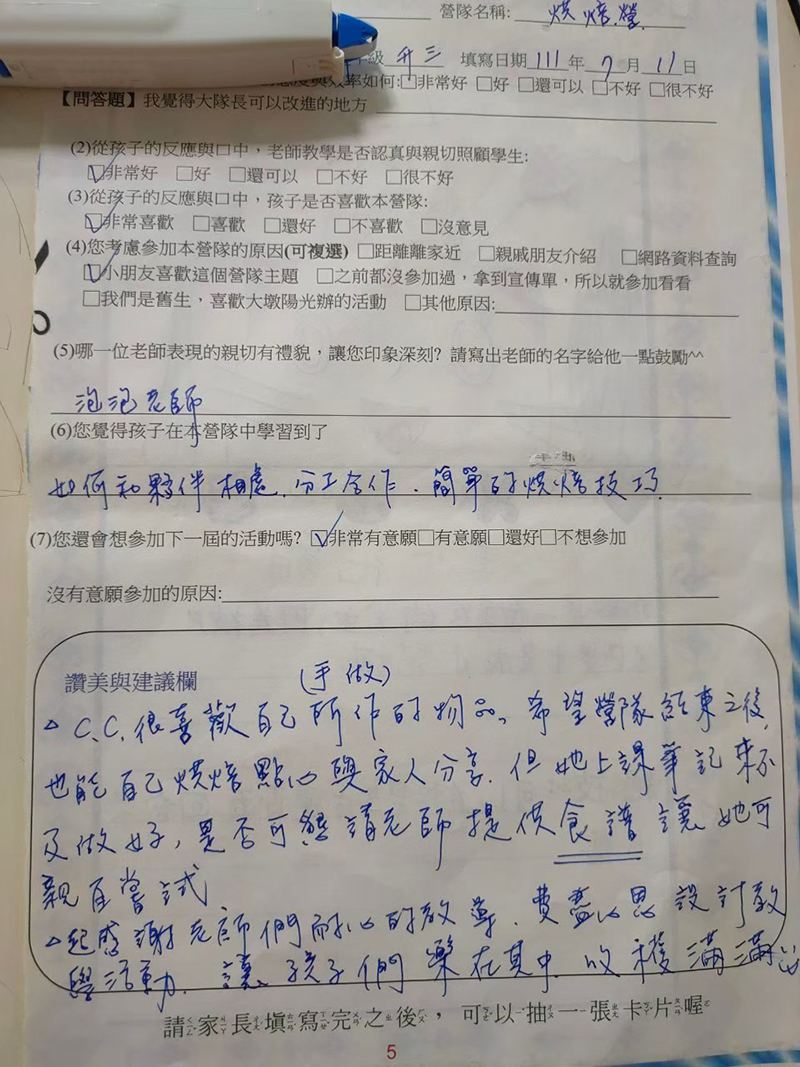 營隊名稱: 烘焙營
級 升三 填寫日期 111 年 7 月 11 日
態度與效率如何:□非常好 □好 □還可以 □不好 □很不好
【問答題】我覺得大隊長可以改進的地方
(2)從孩子的反應與口中，老師教學是否認真與親切照顧學生:
☑非常好 □好 □還可以 □不好 □很不好
(3)從孩子的反應與口中，孩子是否喜歡本營隊:
☑非常喜歡 □喜歡 □還好 □不喜歡 □沒意見
(4)您考慮參加本營隊的原因(可複選) □距離離家近 □親戚朋友介紹 □網路資料查詢
☑小朋友喜歡這個營隊主題 □之前都沒參加過，拿到宣傳單，所以就參加看看
□我們是舊生，喜歡大墩陽光辦的活動 □其他原因:
(5)哪一位老師表現的親切有禮貌，讓您印象深刻? 請寫出老師的名字給他一點鼓勵^^
泡泡老師
(6)您覺得孩子在本營隊中學習到了
如何和夥伴相處、分工合作、簡單的烘焙技巧
(7)您還會想參加下一屆的活動嗎? ☑非常有意願□有意願□還好□不想參加
沒有意願參加的原因:
讚美與建議欄 (手做)
△ C.C.很喜歡自己所作的物品。希望營隊結束之後,
也能自己烘焙點心與家人分享. 但她上課筆記來不
及做好, 是否可能請老師提供食譜讓她可
親自嘗試
△ 感謝老師們耐心的教導、費盡心思設計教
學活動. 讓孩子們樂在其中. 收穫滿滿
請家長填寫完之後，可以抽一張卡片喔
5